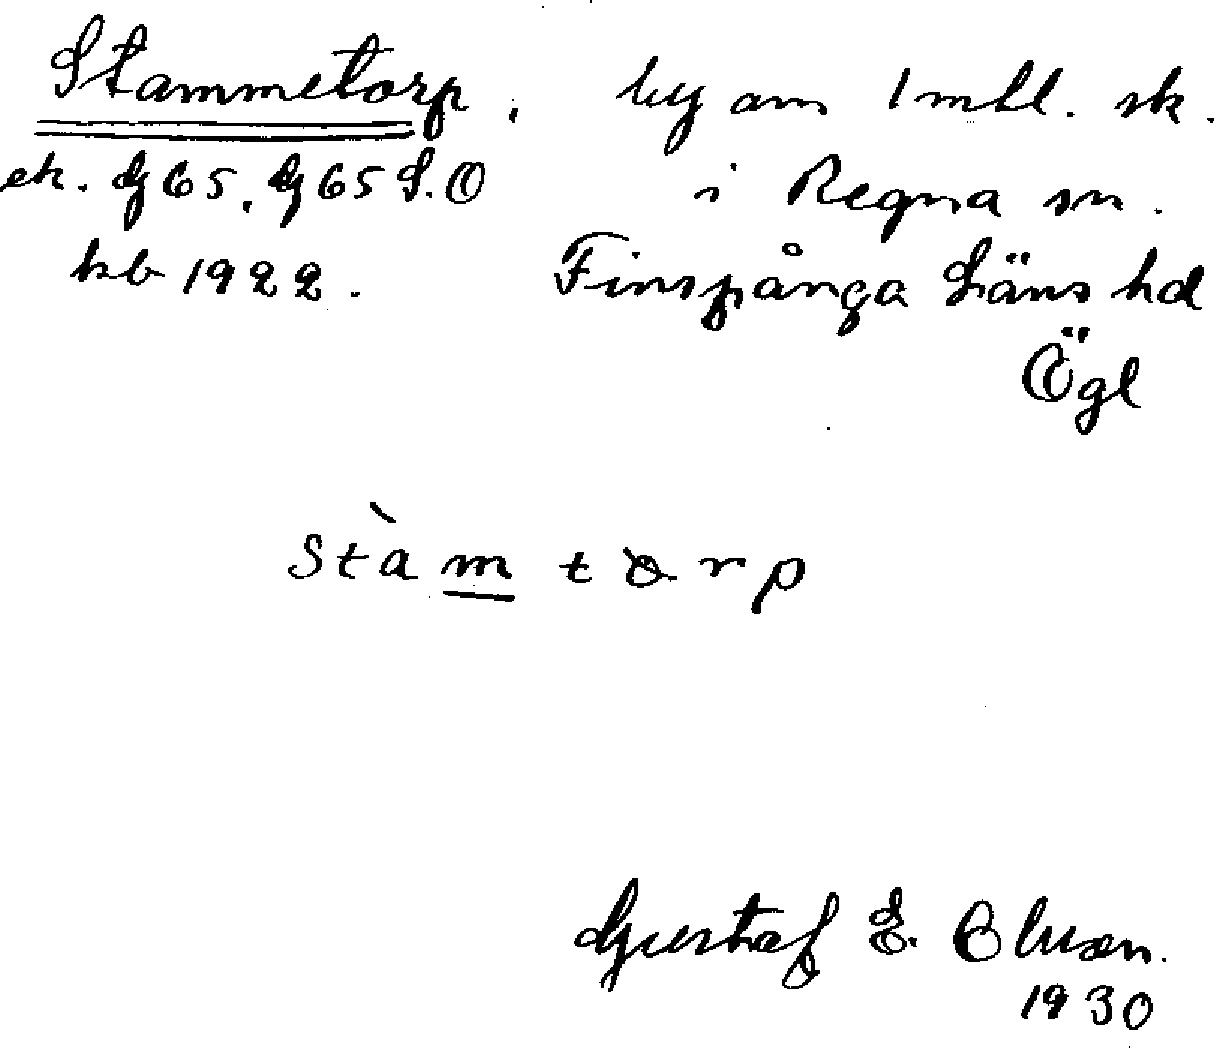 Stammetorp, by om 1 mtl. sk.
ek. G 65, G 65 S.O i Regna sn.
kb 1922. Finspånga Läns hd
Ögl
Stàm torp
Gustaf E. Olsson.
1930